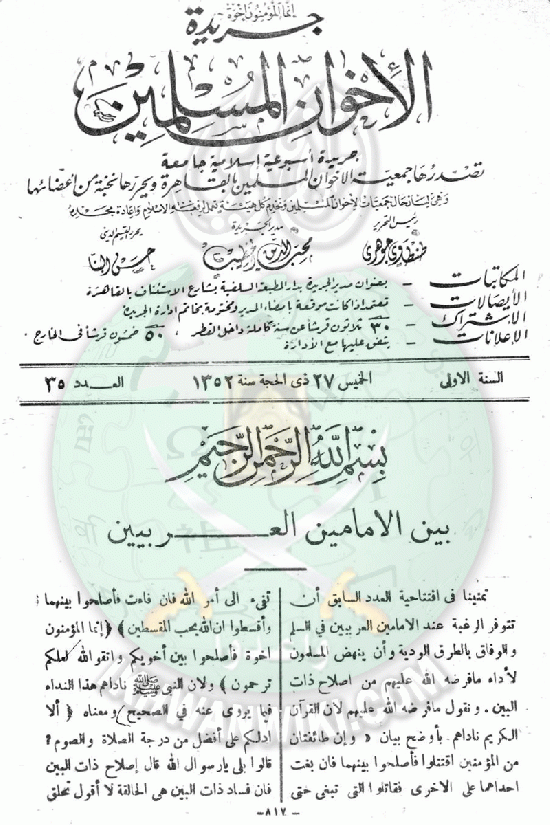 إنما المؤمنون إخوة
جريدة
الإخوان المسلمين
جريدة أسبوعية إسلامية جامعة
تصدرها جمعية الاخوان المسلمين بالقاهرة ويحررها نخبة من اعضائها
رئيس التحرير
مدير الجريدة
طنطاوي جوهري
محب الدين الخطيب
حسن البنا
المكاتبات - بعنوان مدير الجريدة بدار المطبعة السلفية بشارع الاستئناف بالقاهرة
الايصالات - تعتمد اذا كانت موقعة بامضاء المدير ومختومة بخاتم ادارة الجريدة
الاشتراك - ٣٠ ثلاثون قرشا عن سنة كاملة داخل القطر، ٥٠ خمسون قرشا في الخارج
الإعلانات - يتفق عليها مع الادارة
السنة الاولى
الخميس ٢٧ ذى الحجة سنة ١٣٥٢
العدد ٣٥
بسم الله الرحمن الرحيم
بين الامامين العربيين
تمنينا فى افتتاحية العدد السابق أن
تتوفر الرغبة عند الامامين العربيين في السلم
والوفاق بالطرق الودية وأن ينهض المسلمون
لأداء مافرضه الله عليهم من اصلاح ذات
البين. ونقول مافرضه الله عليهم لأن القرآن
الكريم ناداهم بأوضح بيان « وإن طائفتان
من المؤمنين اقتتلوا فأصلحوا بينهما فان بغت
احداهما على الاخرى فقاتلوا التى تبغى حتى
تفىء الى أمر الله فان فاءت فأصلحوا بينهما
وأقسطوا ان الله يحب المقسطين﴾ ﴿إنما المؤمنون
اخوة فأصلحوا بين أخويكم واتقوا الله لعلكم
ترحمون﴾ ولان النبى ﷺ ناداهم هذا النداء
فيما يروى عنه في الصحيح ومعناه ﴿ألا
ادلكم على أفضل من درجة الصلاة والصوم؟
قالوا بلى يارسول الله قال إصلاح ذات البين
فان فساد ذات البين هى الحالقة لا أقول تحلق
-٨١٢-